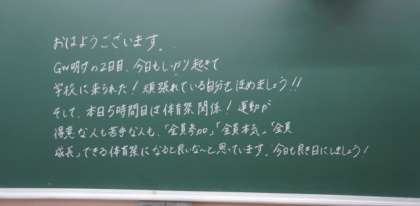 おはようございます。
GW明けの2日目、今日もしっかり起きて
学校に来られた！頑張れている自分をほめましょう！！
そして、本日5時間目は体育祭関係！運動が
得意な人も苦手な人も、「全員参加」「全員本気」「全員
成長」できる体育祭になると良いな〜と思っています。今日も良き日にしましょう！